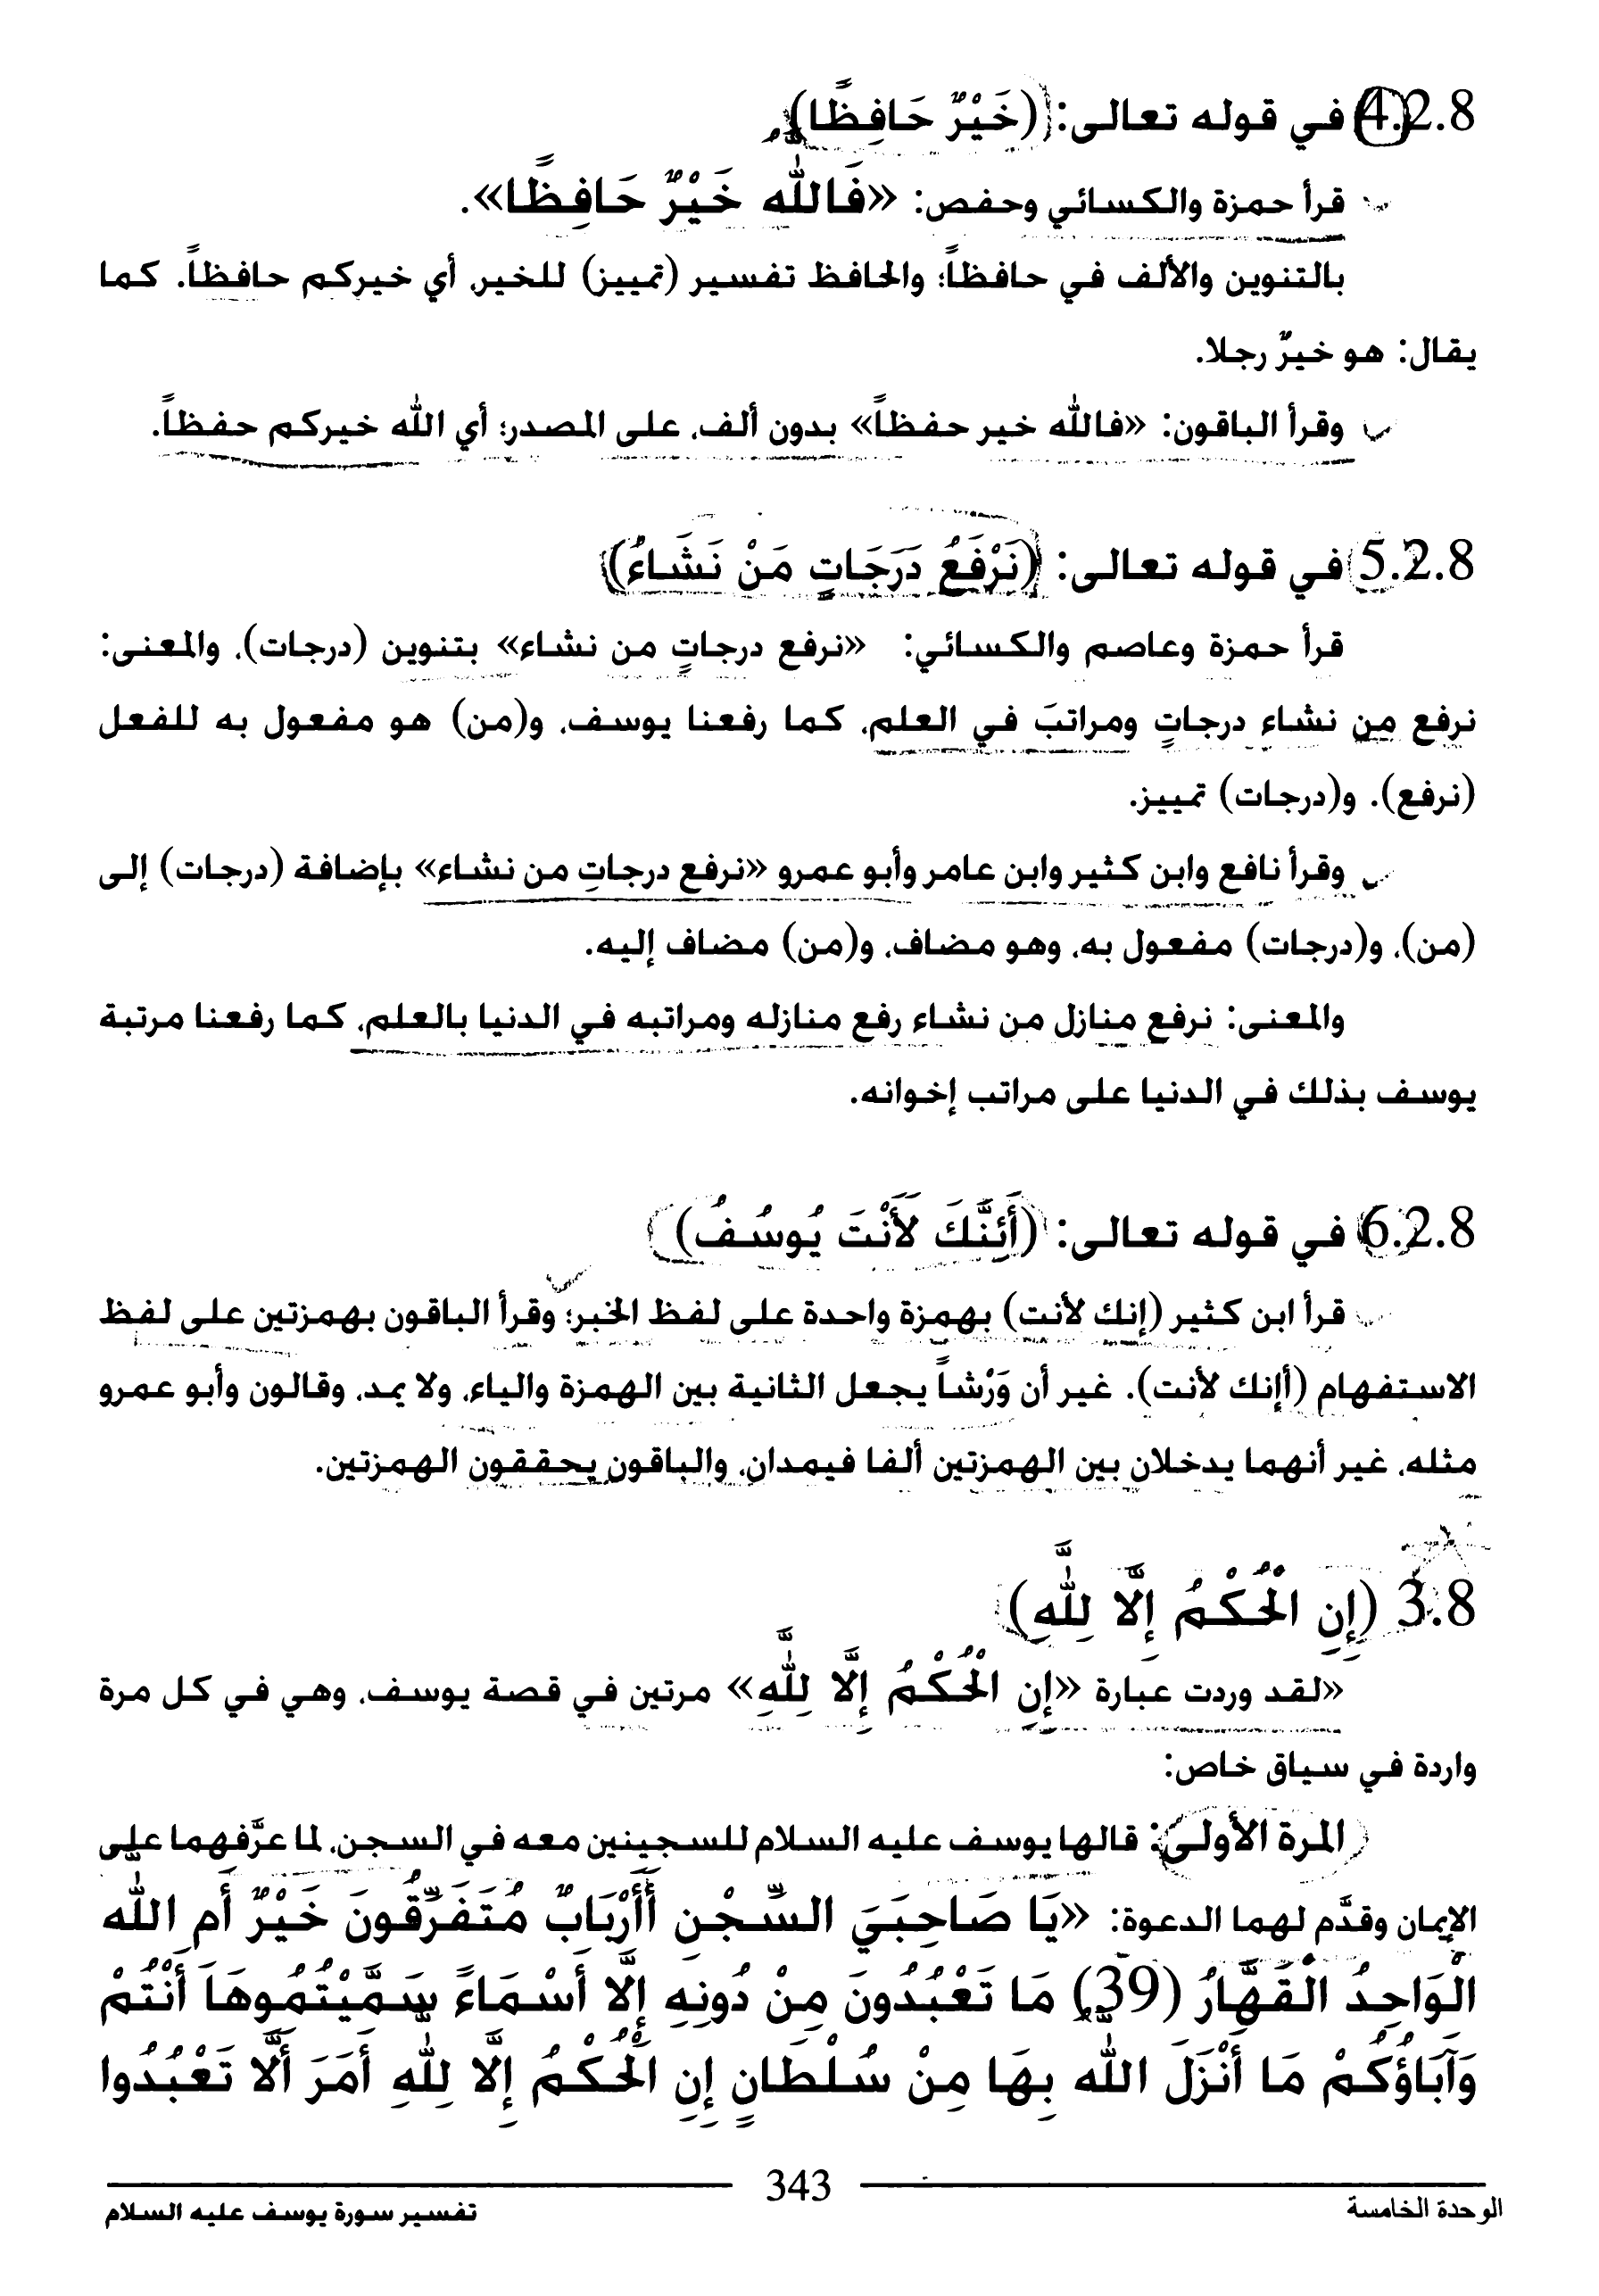 4.2.8 في قوله تعالى: (خَيْرٌ حَافِظًا)
قرأ حمزة والكسائي وحفص: «فَالله خَيْرٌ حَافِظًا».
بالتنوين والألف في حافظاً؛ والحافظ تفسير (تمييز) للخير، أي خيركم حافظاً. كما
يقال: هو خيرٌ رجلا.
وقرأ الباقون: «فالله خير حفظاً» بدون ألف، على المصدر؛ أي الله خيركم حفظاً.
5.2.8 في قوله تعالى: (نَرْفَعُ دَرَجَاتٍ مَنْ نَشَاءُ)
قرأ حمزة وعاصم والكسائي: «نرفع درجاتٍ من نشاء» بتنوين (درجات)، والمعنى:
نرفع من نشاء درجاتٍ ومراتبَ في العلم، كما رفعنا يوسف، و(من) هو مفعول به للفعل
(نرفع). و(درجات) تمييز.
وقرأ نافع وابن كثير وابن عامر وأبو عمرو «نرفع درجاتِ من نشاء» بإضافة (درجات) إلى
(من)، و(درجات) مفعول به، وهو مضاف، و(من) مضاف إليه.
والمعنى: نرفع منازل من نشاء رفع منازله ومراتبه في الدنيا بالعلم، كما رفعنا مرتبة
يوسف بذلك في الدنيا على مراتب إخوانه.
6.2.8 في قوله تعالى: (أَئِنَّكَ لَأَنْتَ يُوسُفُ)
قرأ ابن كثير (إنك لأنت) بهمزة واحدة على لفظ الخبر؛ وقرأ الباقون بهمزتين على لفظ
الاستفهام (أإنك لأنت). غير أن وَرْشاً يجعل الثانية بين الهمزة والياء، ولا يمد، وقالون وأبو عمرو
مثله، غير أنهما يدخلان بين الهمزتين ألفا فيمدان، والباقون يحققون الهمزتين.
3.8 (إِنِ الْحُكْمُ إِلَّا لِلَّهِ)
«لقد وردت عبارة «إِنِ الْحُكْمُ إِلَّا لِلَّهِ» مرتين في قصة يوسف، وهي في كل مرة
واردة في سياق خاص:
المرة الأولى: قالها يوسف عليه السلام للسجينين معه في السجن، لما عرَّفهما على
الإيمان وقدَّم لهما الدعوة: «يَا صَاحِبَيَ السِّجْنِ أَأَرْبَابٌ مُتَفَرِّقُونَ خَيْرٌ أَمِ الله
الْوَاحِدُ الْقَهَّارُ (39) مَا تَعْبُدُونَ مِنْ دُونِهِ إِلَّا أَسْمَاءً سَمَّيْتُمُوهَا أَنْتُمْ
وَآَبَاؤُكُمْ مَا أَنْزَلَ الله بِهَا مِنْ سُلْطَانٍ إِنِ الْحُكْمُ إِلَّا لِلهِ أَمَرَ أَلَّا تَعْبُدُوا
343
الوحدة الخامسة
تفسير سورة يوسف عليه السلام